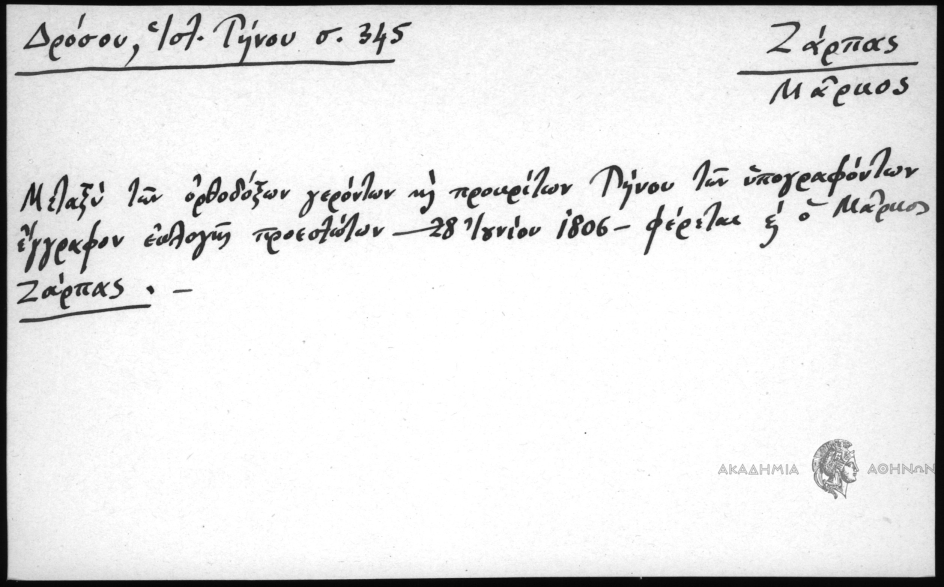 Δρόσου, Ἱστ. Τήνου σ. 345
Ζάρπας
Μᾶρκος
Μεταξὺ τῶν ὀρθοδόξων γερόντων κὴ προκρίτων Τήνου τῶν ὑπογραφόντων
ἔγγραφον ἐκλογῆς προεστώτων — 28 Ἰουνίου 1806 — φέρεται κὴ ὁ Μᾶρκος
Ζάρπας . —
ΑΚΑΔΗΜΙΑ ΑΘΗΝΩΝ